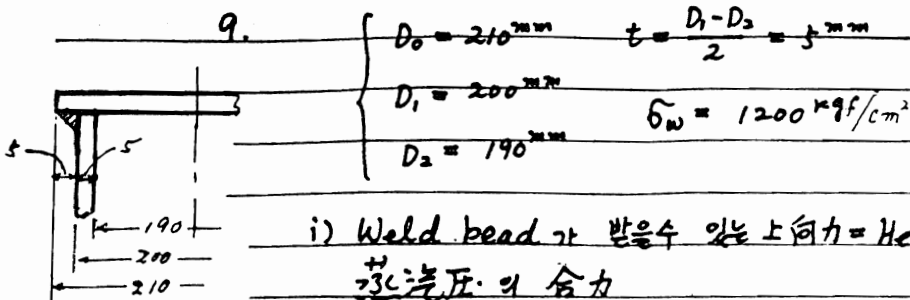 9.
D₀ = 210ᵐᵐ t = (D₁-D₂)/2 = 5ᵐᵐ
D₁ = 200ᵐᵐ σw = 1200 kgf/cm²
D₂ = 190ᵐᵐ
5 5
190
200
210
i) Weld bead가 받을수 있는 上向力 = He
蒸汽圧의 合力